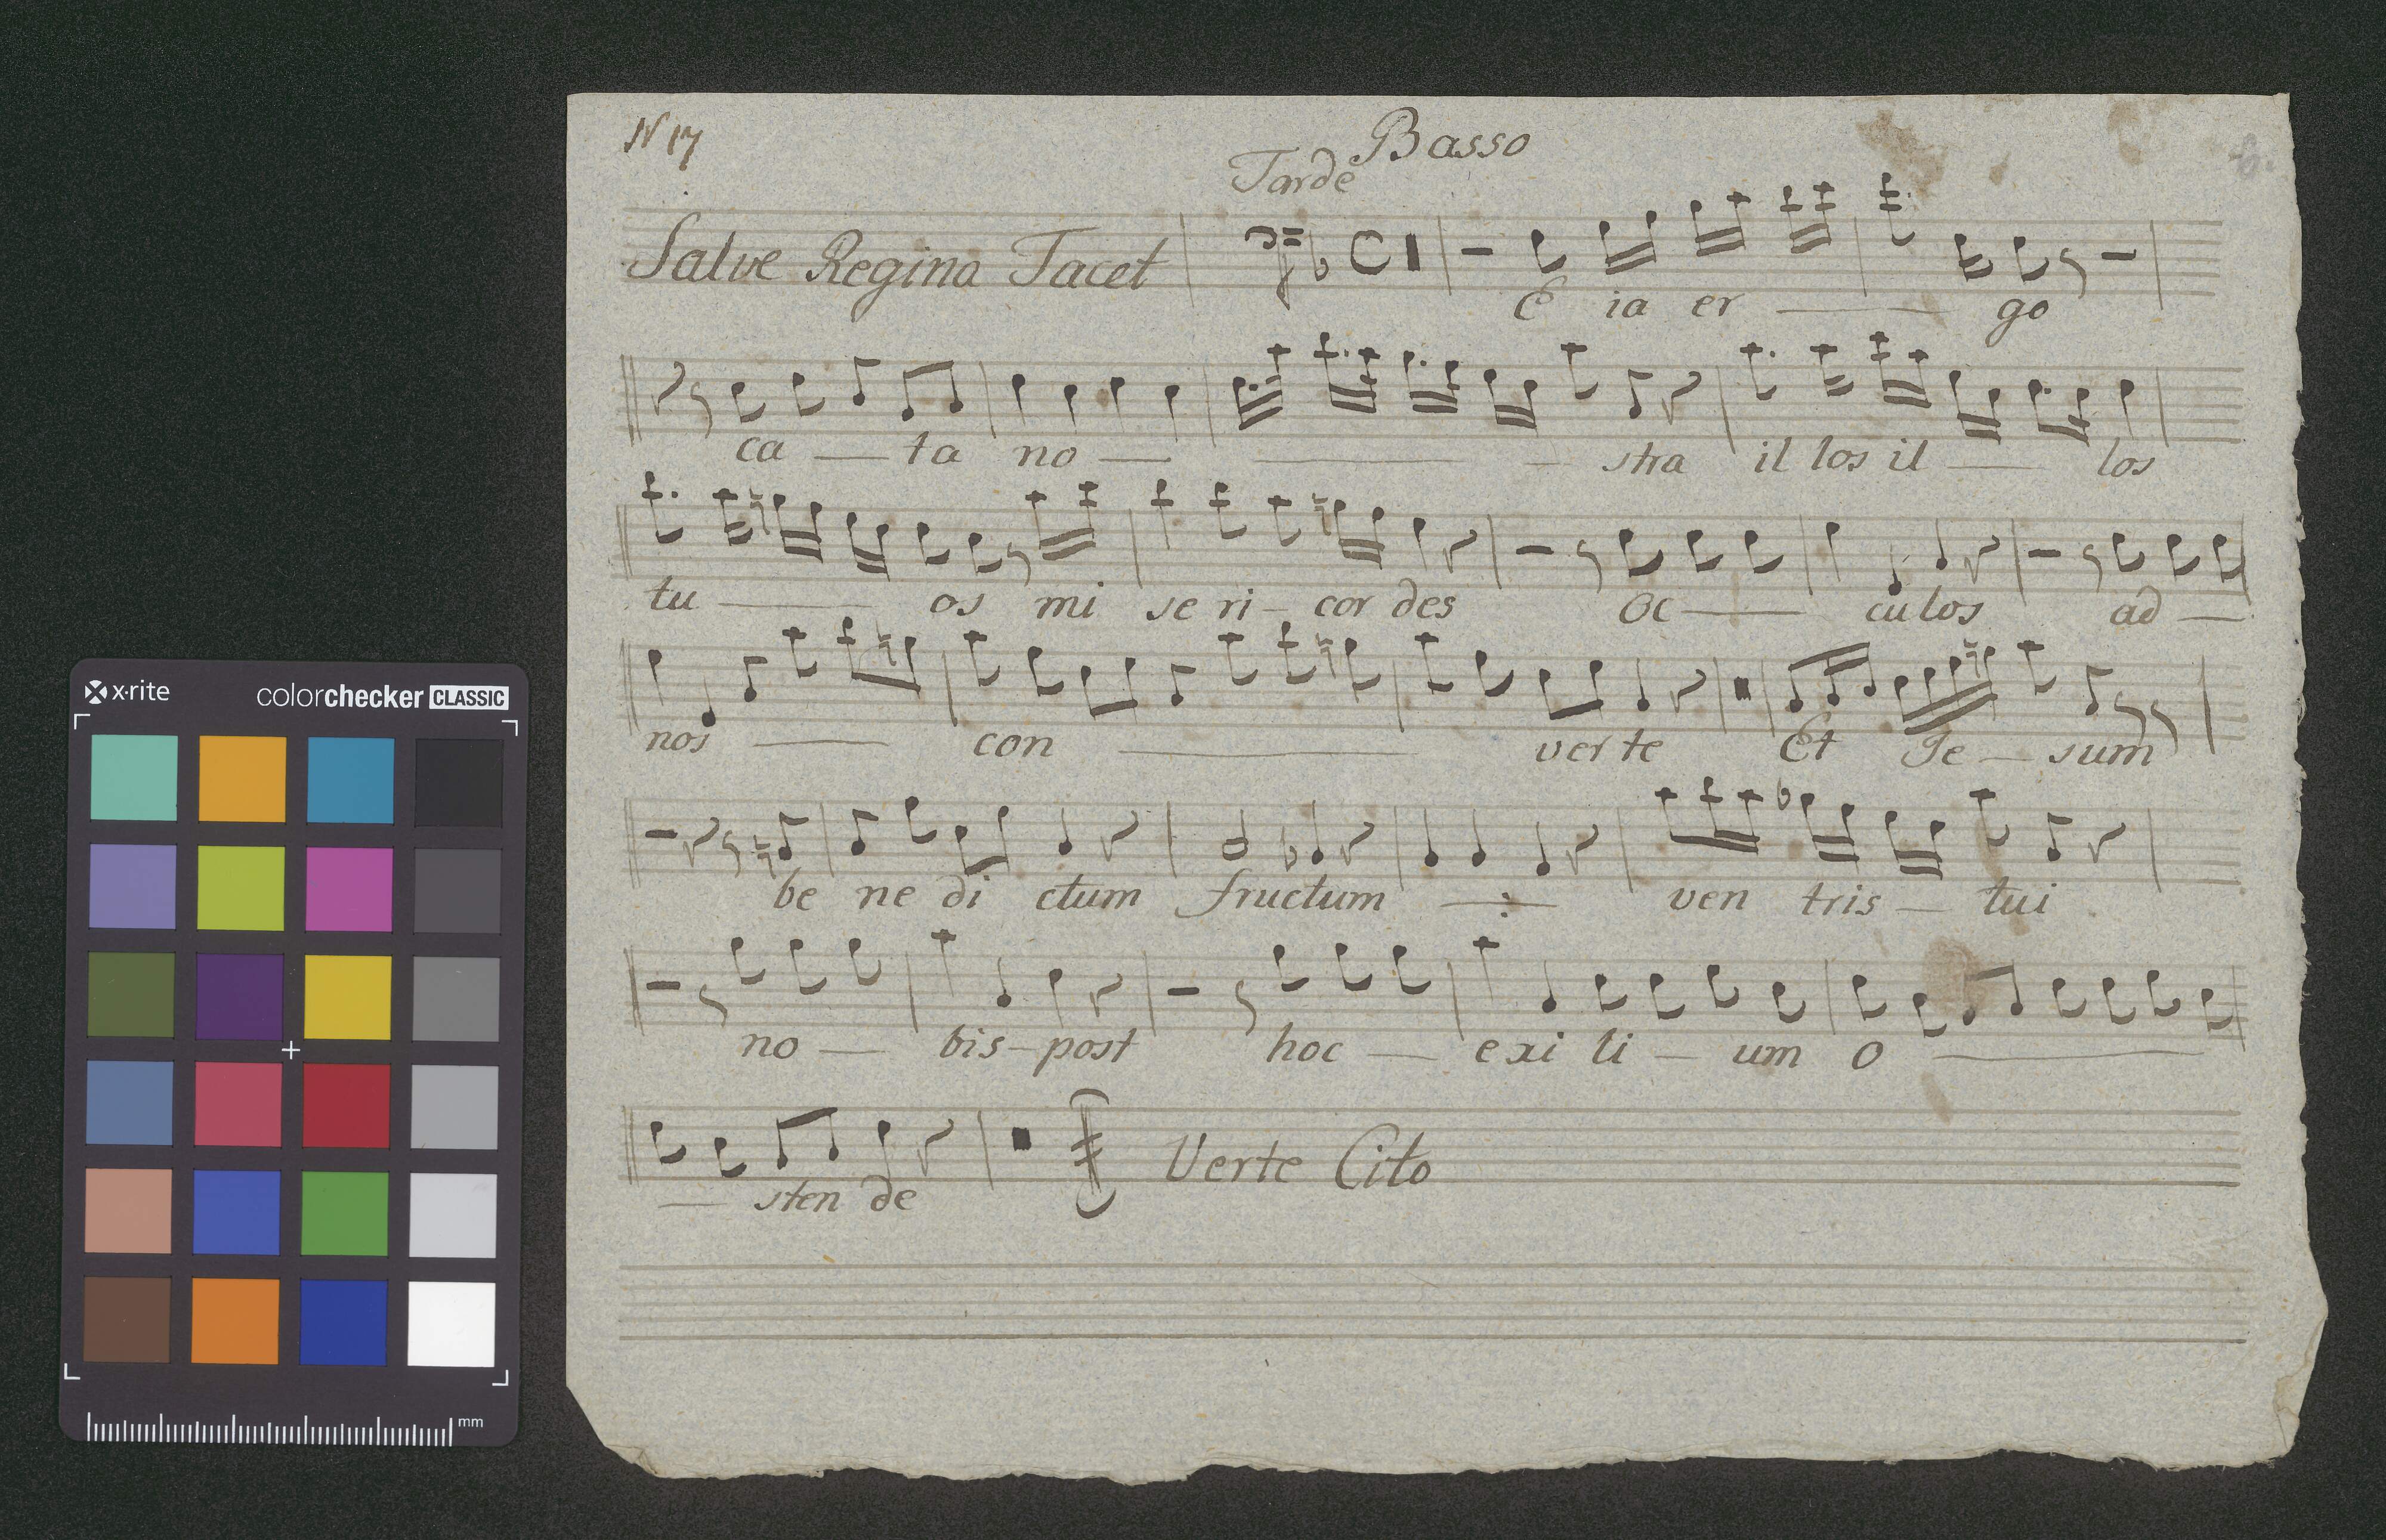 N 17
Basso
Tarde
Salve Regina Tacet
E ia er go
ca ta no stra il los il los
tu os mi se ri cor des oc cu los ad
nos con ver te Et Je sum
be ne di ctum fructum ven tris tui
no bis post hoc exi li um o
sten de
Verte Cito
6.
x·rite colorchecker CLASSIC
mm